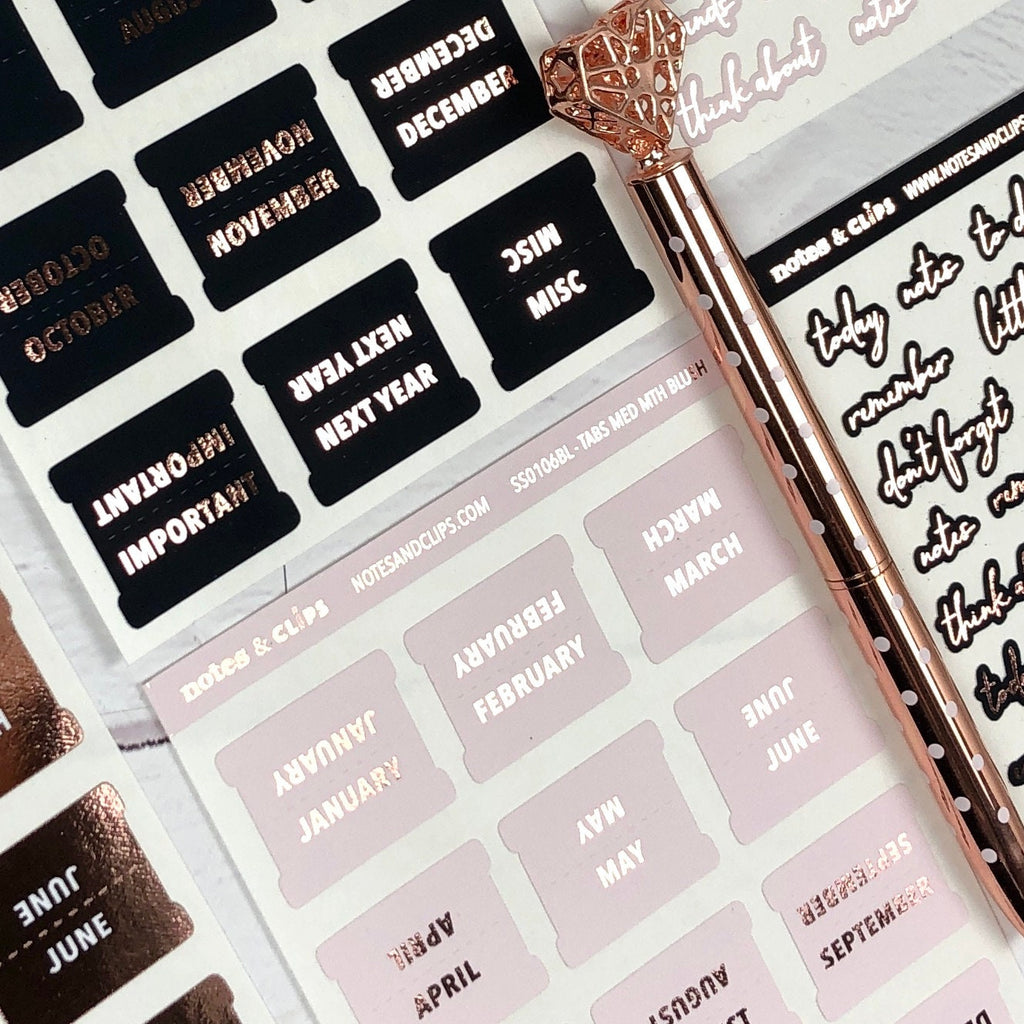 AUGUST
DECEMBER
DECEMBER
NOVEMBER
NOVEMBER
OCTOBER
OCTOBER
MISC
MISC
NEXT YEAR
NEXT YEAR
IMPORTANT
IMPORTANT
think about
notes
notes & clips WWW.NOTESANDCLIPS
today
notes
to d
remember
don't forget
notes
think
notes & clips NOTESANDCLIPS.COM SS0106BL - TABS MED MTH BLUSH
JANUARY
JANUARY
FEBRUARY
FEBRUARY
MARCH
MARCH
APRIL
APRIL
MAY
MAY
JUNE
JUNE
AUGUST
SEPTEMBER
SEPTEMBER
JUNE
JUNE